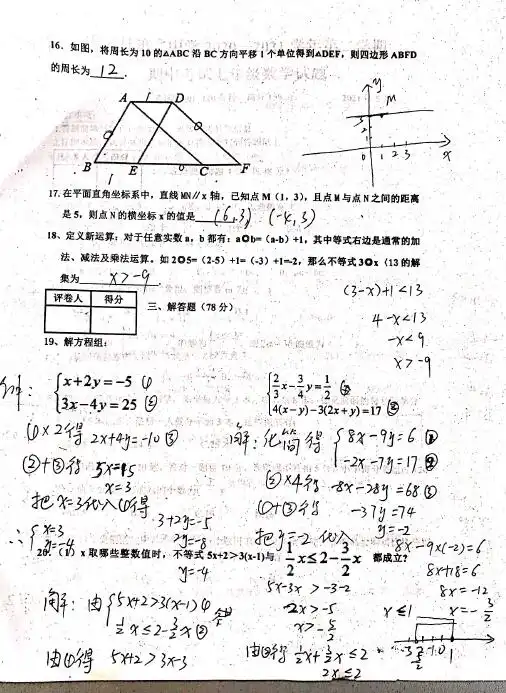 16. 如图，将周长为 10 的△ABC 沿 BC 方向平移 1 个单位得到△DEF，则四边形 ABFD
的周长为 12 .
A 1 D
y
M
3
2
1
0 1 2 3 x
B E C F
1
17. 在平面直角坐标系中，直线 MN∥x 轴，已知点 M（1，3），且点 M 与点 N 之间的距离
是 5，则点 N 的横坐标 x 的值是 (6,3) (-4,3)
18、定义新运算：对于任意实数 a，b 都有：a✪b=（a-b）+1，其中等式右边是通常的加
法、减法及乘法运算。如 2✪5=（2-5）+1=（-3）+1=-2，那么不等式 3✪x〈13 的解
集为 x>-9
(3-x)+1<13
4-x<13
-x<9
x>-9
评卷人 得分
三、解答题（78 分）
19、解方程组：
解：
x+2y=-5 ①
3x-4y=25 ②
①×2得 2x+4y=-10 ③
②+③得 5x=15
x=3
把x=3代入①得
3+2y=-5
2y=-8
y=-4
∴ x=3
y=-4
2/3 x - 3/4 y = 1/2 ①
4(x-y)-3(2x+y)=17 ②
解：化简得 8x-9y=6 ①
-2x-7y=17 ②
②×4得 -8x-28y=68 ③
①+③得 -37y=74
y=-2
把y=-2代入
8x-9×(-2)=6
8x+18=6
8x=-12
x=-3/2
20.（1）x 取哪些整数值时，不等式 5x+2>3(x-1)与 1/2 x≤2-3/2 x 都成立?
解：由 5x+2>3(x-1) ①
1/2 x≤2-3/2 x ②
由①得 5x+2>3x-3
5x-3x>-3-2
2x>-5
x>-5/2
由②得 1/2 x+3/2 x≤2
2x≤2
x≤1